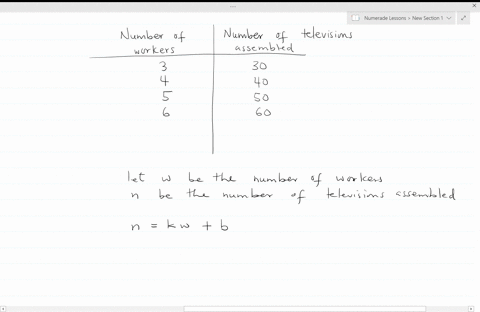 Numerade Lessons > New Section 1
Number of workers Number of televisions assembled
3 30
4 40
5 50
6 60
let w be the number of workers
n be the number of televisions assembled
n = kw + b